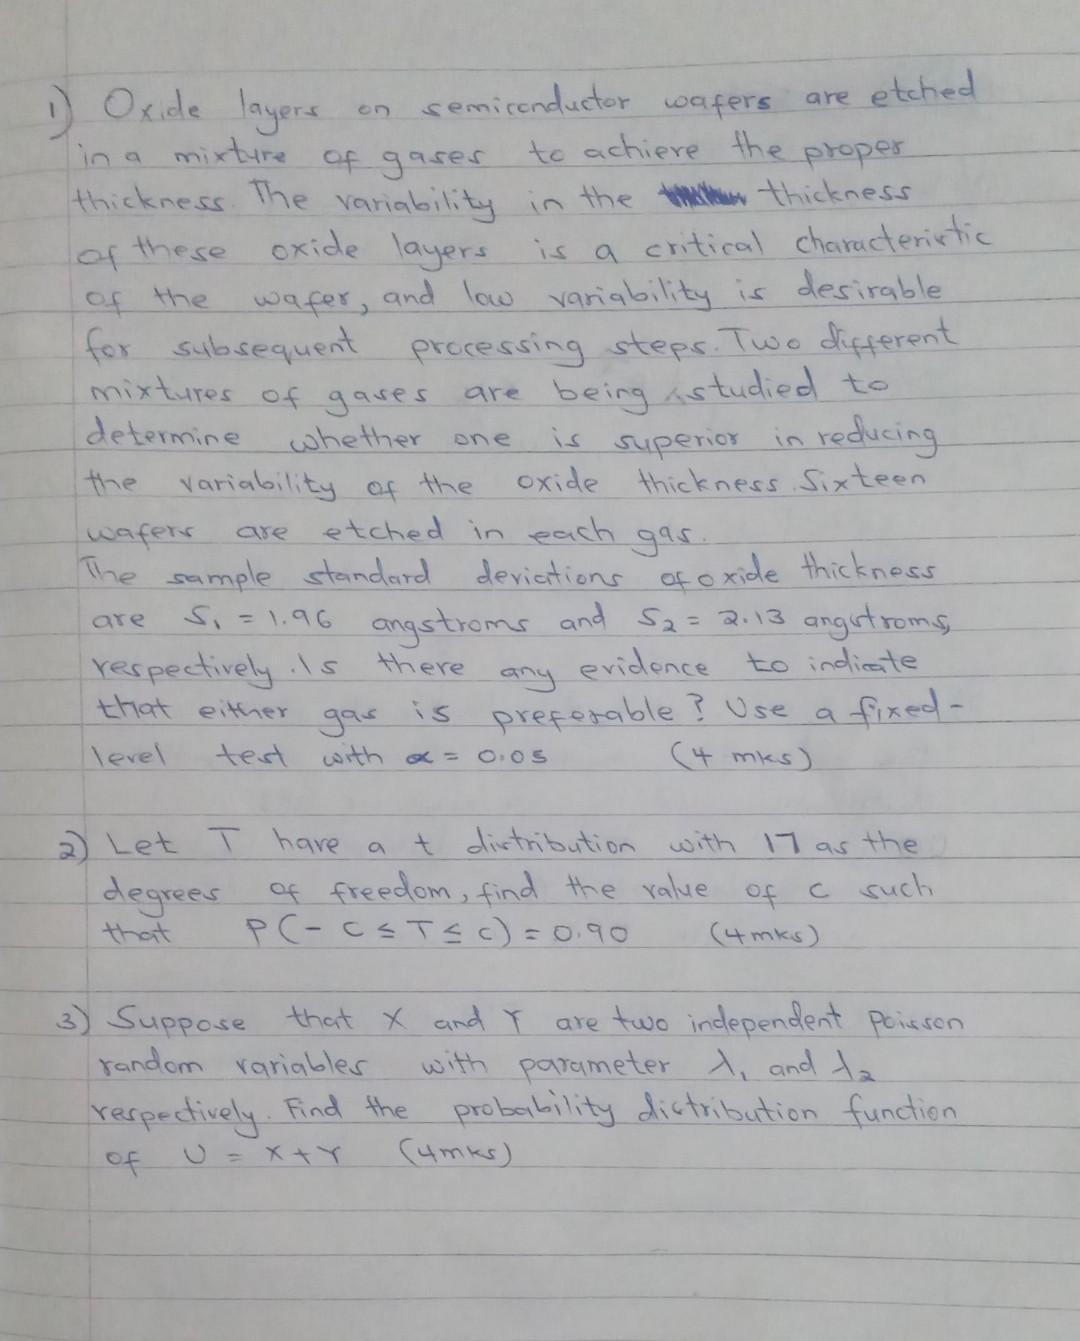 1) Oxide layers on semiconductor wafers are etched
in a mixture of gases to achieve the proper
thickness. The variability in the thickness
of these oxide layers is a critical characteristic
of the wafer, and low variability is desirable
for subsequent processing steps. Two different
mixtures of gases are being studied to
determine whether one is superior in reducing
the variability of the oxide thickness. Sixteen
wafers are etched in each gas.
The sample standard deviations of oxide thickness
are S₁ = 1.96 angstroms and S₂ = 2.13 angstroms,
respectively. Is there any evidence to indicate
that either gas is preferable? Use a fixed-
level test with α = 0.05 (4 mks)
2) Let T have a t distribution with 17 as the
degrees of freedom, find the value of c such
that P(- C ≤ T ≤ c) = 0.90 (4mks)
3) Suppose that X and Y are two independent Poisson
random variables with parameter λ₁ and λ₂
respectively. Find the probability distribution function
of U = X+Y (4mks)